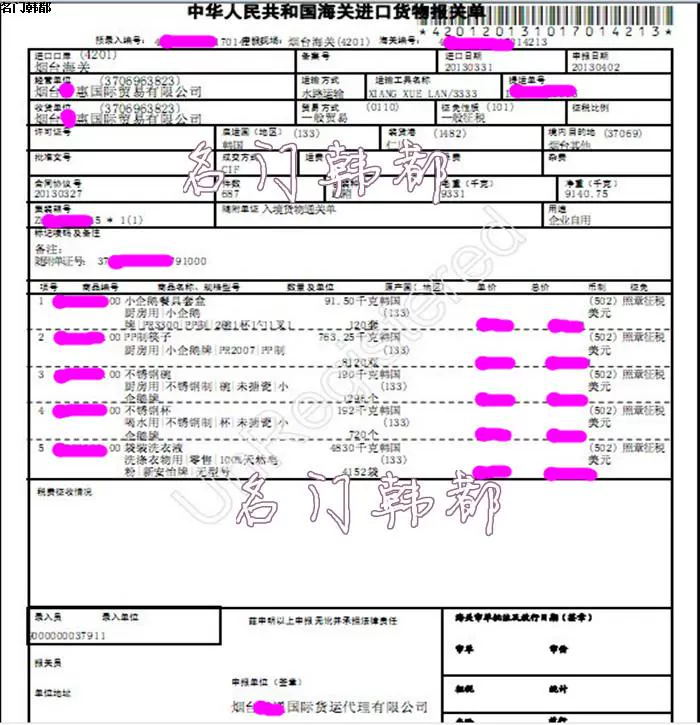 名门韩都
中华人民共和国海关进口货物报关单
*420120131017014213*
预录入编号: 申报现场: 烟台海关(4201) 海关编号: 14213
进口口岸 (4201) 备案号 进口日期 申报日期
烟台海关 20130331 20130402
经营单位 (3706963823) 运输方式 运输工具名称 提运单号
烟台 惠国际贸易有限公司 水路运输 XIANG XUE LAN/3333
收货单位 (3706963823) 贸易方式 (0110) 征免性质 (101) 征税比例
烟台 惠国际贸易有限公司 一般贸易 一般征税
许可证号 起运国 (地区) (133) 装货港 (1482) 境内目的地 (37069)
韩国 烟台其他
批准文号 成交方式 运费 杂费
CIF
名门韩都
合同协议号 件数 毛重 (千克) 净重 (千克)
20130327 687 9331 9140.75
集装箱号 随附单证 入境货物通关单 用途
5 * 1(1) 企业自用
标记唛码及备注
备注:
随附单证号: 37 791000
项号 商品编号 商品名称、规格型号 数量及单位 原产国 (地区) 单价 总价 币制 征免
1 00 小企鹅餐具套盒 91.50千克 韩国 (502) 照章征税
厨房用|小企鹅 (133) 美元
牌|PR3300|PP制|2碗1杯1勺1叉1 120套
2 00 PP制筷子 763.25千克 韩国 (502) 照章征税
厨房用|小企鹅牌|PR2007|PP制 (133) 美元
8120双
3 00 不锈钢碗 190千克 韩国 (502) 照章征税
厨房用|不锈钢制|碗|未搪瓷|小 (133) 美元
企鹅牌 1296个
4 00 不锈钢杯 192千克 韩国 (502) 照章征税
喝水用|不锈钢制|杯|未搪瓷|小 (133) 美元
企鹅牌 720个
5 00 袋装洗衣液 4830千克 韩国 (502) 照章征税
洗涤衣物用|零售|100%天然皂 (133) 美元
粉|新安怡牌|无型号 4152袋
UnRegistered
税费征收情况
名门韩都
录入员 录入单位 兹申明以上申报无讹并承担法律责任 海关审单批注及放行日期 (签章)
0000000037911
审单 审价
报关员
申报单位 (签章) 征税 统计
单位地址
烟台 国际货运代理有限公司